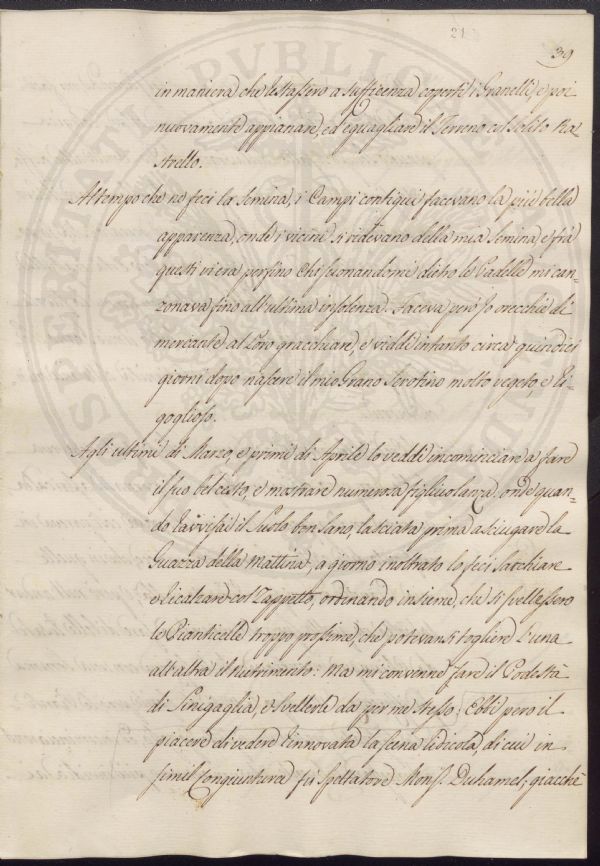 21
39
in maniera che restassero a sufficenza coperti i Granelli, e poi
nuovamente appianare, ed eguagliare il Terreno col solito Ra-
strello.
Al tempo che ne feci la semina, i Campi contigui facevano la più bella
apparenza, onde i vicini si ridevano della mia semina, e frà
questi vi era perfino chi suonandomi dietro le Padelle mi can-
zonava fino all'ultima insolenza. Faceva però Io orecchie di
mercante al loro gracchiare, e viddi intanto circa quindici
giorni dopo nascere il mio Grano serotino molto vegeto, e ri-
goglioso.
Agli ultimi di Marzo, e primi di Aprile lo veddi incominciare a fare
il suo bel cesto, e mostrare numerosa figliuolanza, onde quan-
do ravvisai il suolo ben sano, lasciata prima asciugare la
Guazza della mattina, a giorno inoltrato lo feci sarchiare
e ricalzare col Zappetto, ordinando insieme, che si svellessero
le Pianticelle troppo prossime, che potevansi togliere l'una
all'altra il nutrimento: Ma mi convenne fare il Podestà
di Sinigaglia, e svellerle da per me stesso; Ebbi però il
piacere di vedere rinnovata la scena ridicola, di cui in
simil congiuntura fù spettatore Mons. Duhamel; giacchè
SPERITATI PUBLICAE